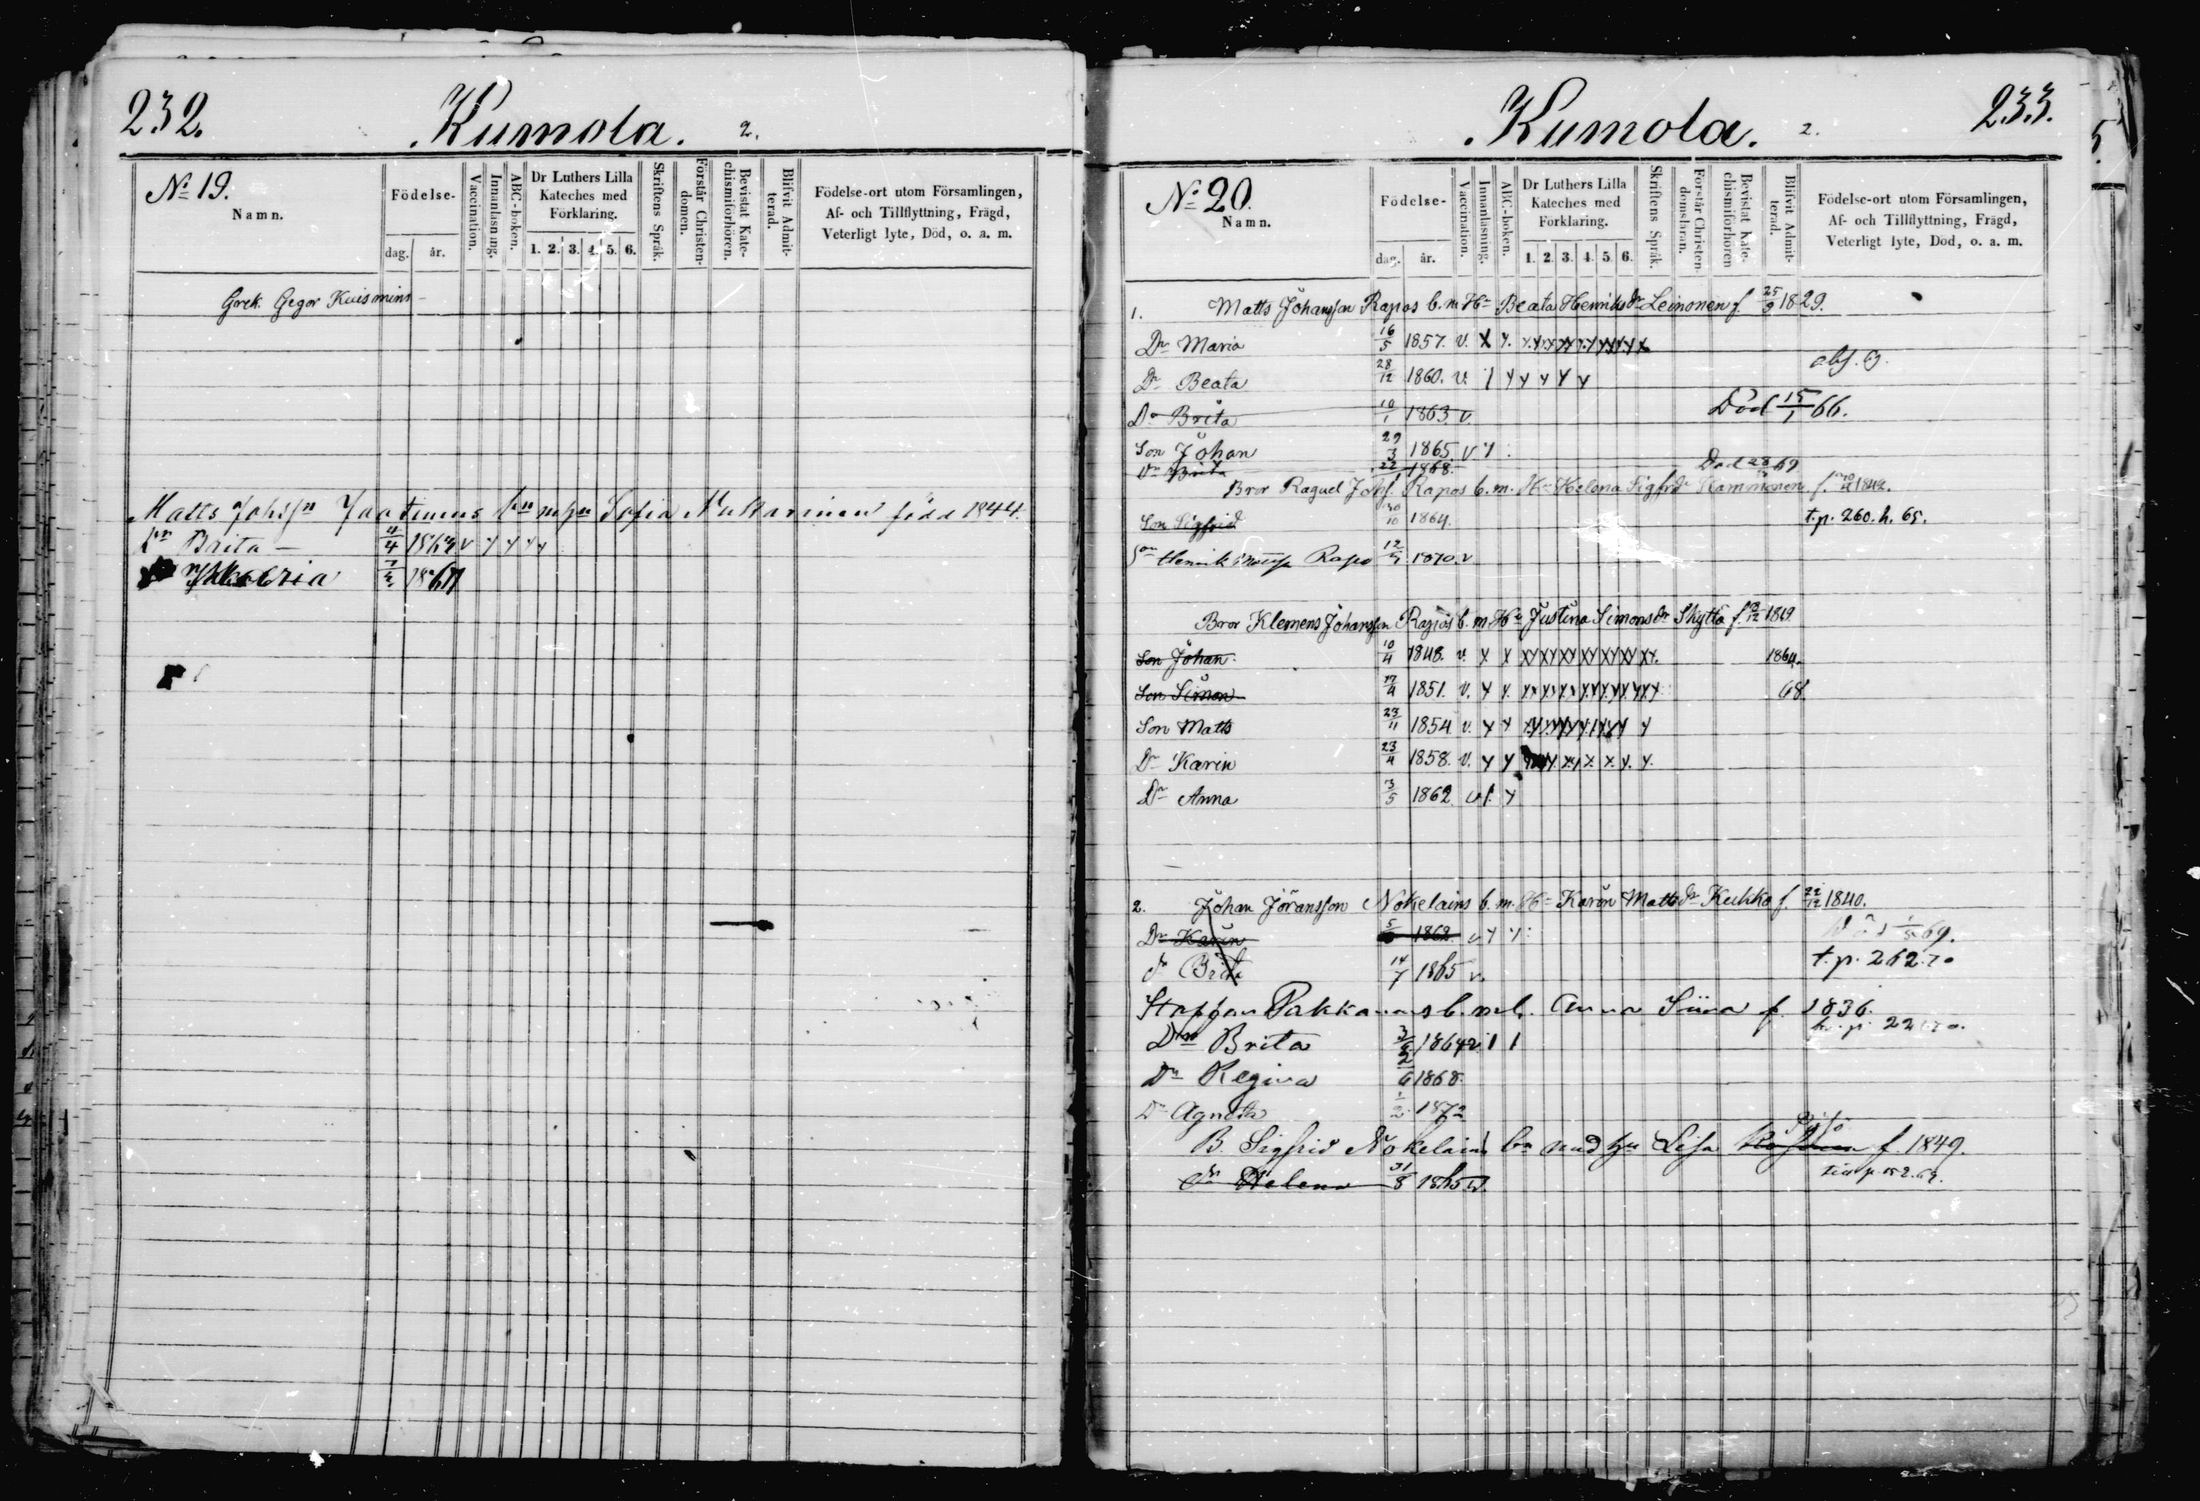 232.
Kumola. 2.
No 19.
Namn.
Födelse-
dag. år.
Vaccination.
Innanläsning.
ABC-boken.
Dr Luthers Lilla Kateches med Förklaring.
1. 2. 3. 4. 5. 6.
Skriftens Språk.
Förstår Christendomen.
Bevistat Katechismiförhören.
Blifvit Admitterad.
Födelse-ort utom Församlingen,
Af- och Tillflyttning, Frägd,
Veterligt lyte, Död, o. a. m.
Grek. Gegor Kuismins
Matts Johsn Jaatinens Sofia född 1844.
Dr Brita 4/4
Maria 1867
233.
Kumola. 2.
No 20.
Namn.
Födelse-
dag. år.
Vaccination.
Innanläsning.
ABC-boken.
Dr Luthers Lilla Kateches med Förklaring.
1. 2. 3. 4. 5. 6.
Skriftens Språk.
Förstår Christendomsläran.
Bevistat Katechismiförhören
Blifvit Admitterad.
Födelse-ort utom Församlingen,
Af- och Tillflyttning, Frägd,
Veterligt lyte, Död, o. a. m.
1. Matts Johansson Rapos b. m. Hu Beata Henriksdr Leinonen f. 25/9 1829.
Dr Maria 16/5 1857. v.
Dr Beata 28/12 1860. v.
Dr Brita 10/1 1863. v. Död 15/1 66.
Son Johan 29/3 1865 v
Dr Brita 22 1868. Död 69
Bror Raguel Johs. Rapos b. m. Hu Helena Sigfrdr Kammonen f. 1842.
Son Sigfrid 30/10 1864. t.p. 260. h. 65.
Son Henrik Rapo 12 1870. v
Bror Klemens Johansson Rapos b. m. Hu Justina Simonsdr Skyttä f. 1819.
Son Johan 10/4 1848. v. 1864.
Son Simon 17/4 1851. v. 68.
Son Matts 23/11 1854 v.
Dr Karin 23/4 1858. v.
Dr Anna 3/5 1862 v
2. Johan Jöransson Nokelains b. m. Hu Karin Mattsdr Kukko f 22/12 1840.
Dr Karin 5 1862. v 69.
dr Brita 14/7 1865 v. t.p. 262. 70
Staffan Pakkanens b. m. h. Anna f. 1836.
Dr Brita 1864 v
Dr Regina 1868.
Dr Agneta 1/2 1872
B. Sigfrid Nokelains bn med hu Lisa f. 1849.
dr Helena 31/8 1865 v.